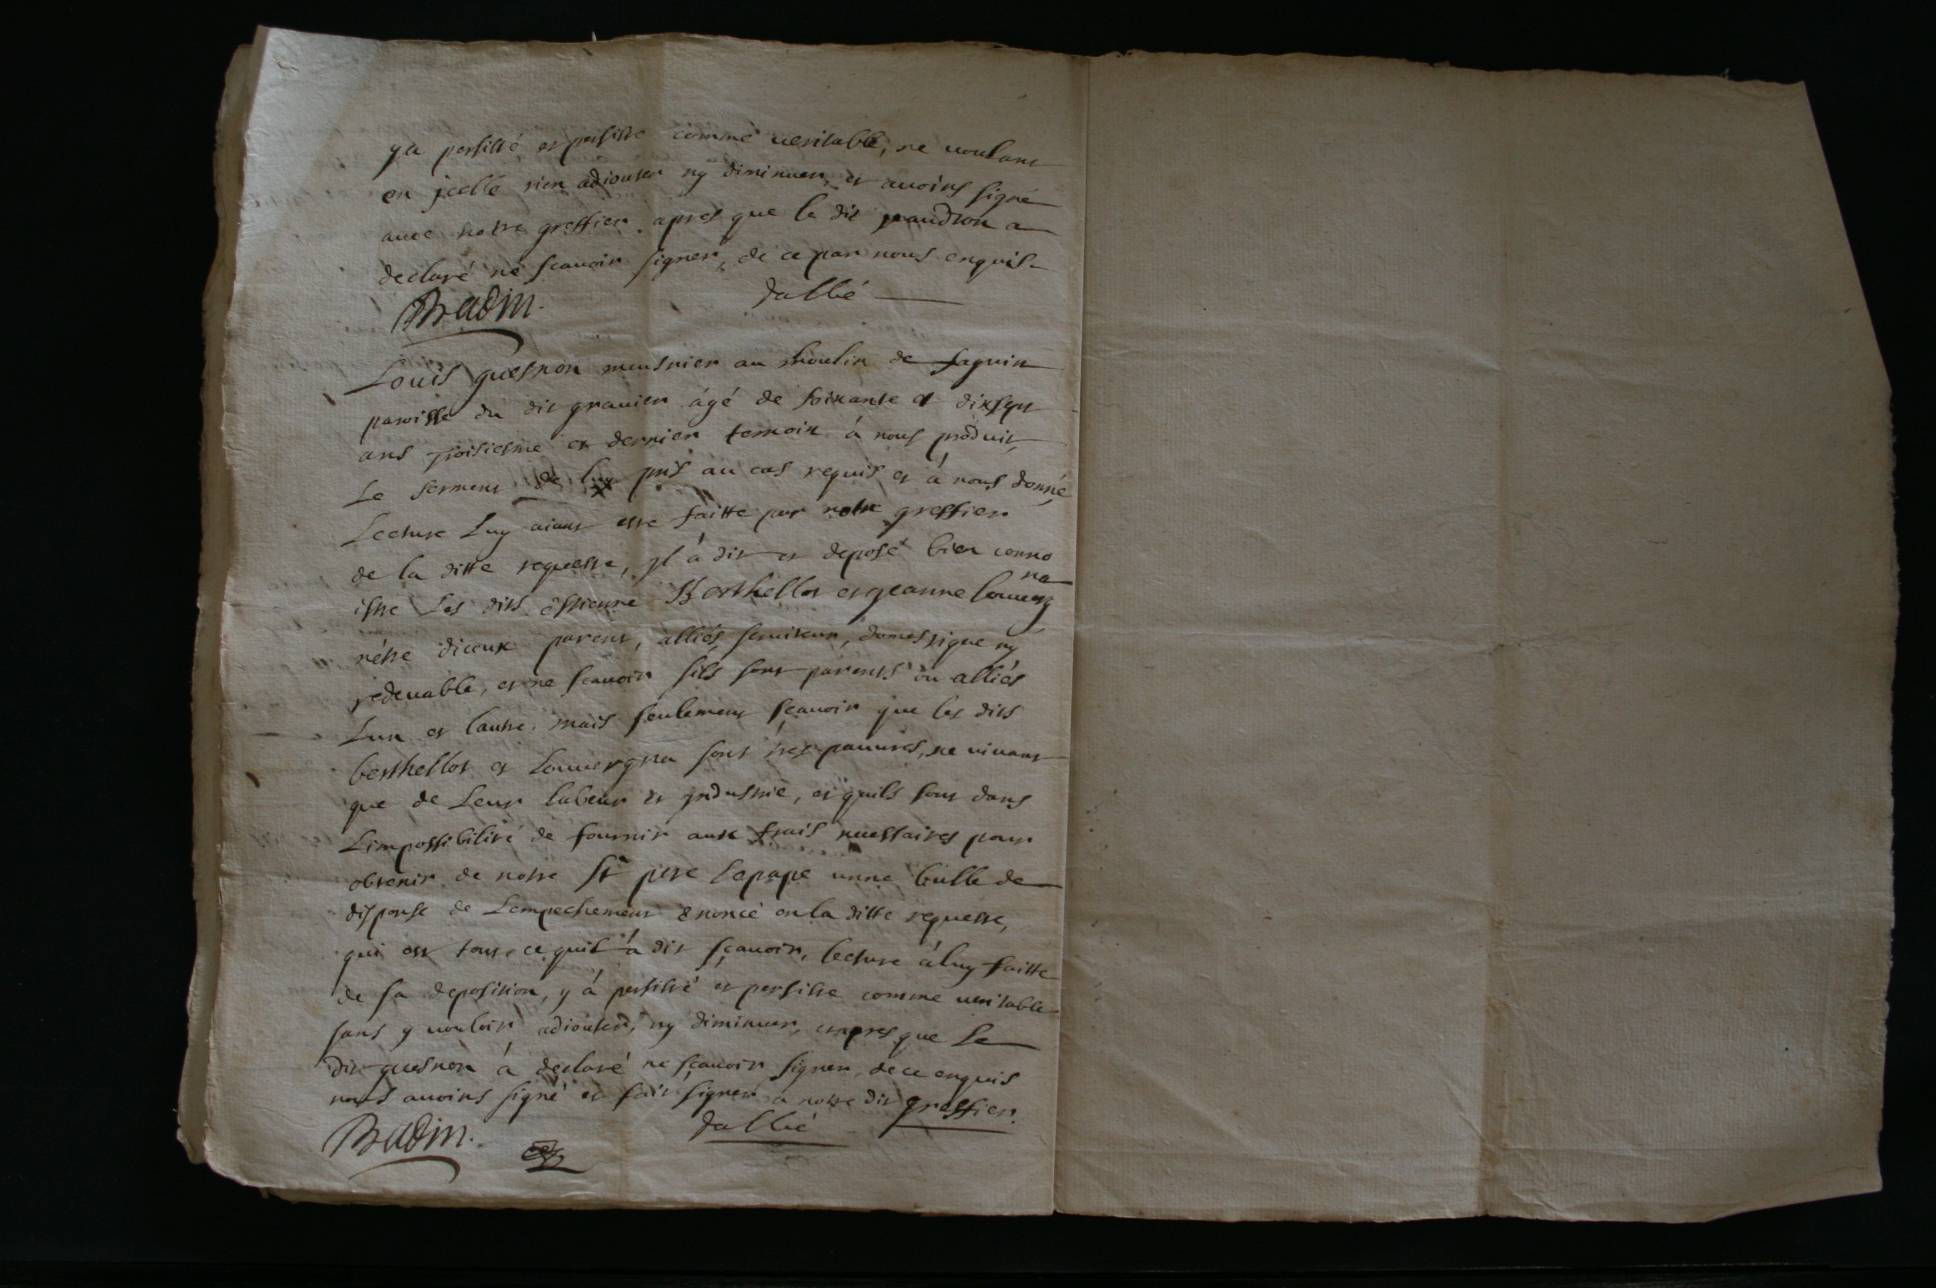 ya persisté et persiste comme veritable, ne voulant
en jcelle rien adiouter ny diminuer, et avoins signé
avec notre greffier, apres que le dit gaudron a
declaré ne scavoir signer, de ce par nous enquis
Badin. Jallié
Louis guesnon meusnier au moulin de
paroisse du dit gravier âgé de soixante et dixsept
ans troisiesme et dernier temoin à nous produit,
Le serment de luy pris au cas requis et à nous donné
Lecture Luy aiant esté faitte par notre greffier
de la ditte requeste, jl à dit et deposé bien conno
istre Les dits éstienne Berthellot et jeanne louverg
na
nétre diceux parent, alliés, serviteur, domestique ny
redevable, et ne scavoir sils sont parents ou alliés
Lun et lautre, mais seulement scavoir que les dits
berthellot et Louvergna sont tres pauvres, ne vivant
que de Leur labeur et jndustrie, et quils sont dans
Limpossibilité de fournir aux frais necessaires pour
obtenir de notre St pere Le pape unne bulle de
dispense de Lempechement énoncé en la ditte requeste,
qui est tout ce quil à dit sçavoir, lecture à luy faitte
de sa deposition, y à persisté et persiste comme veritable
sans y vouloir adiouter, ny diminuer, et apres que Le
dit guesnon à declaré ne sçavoir signer, de ce enquis
nous avoins signé et fait signer à notre dit greffier.
Badin. Jallié